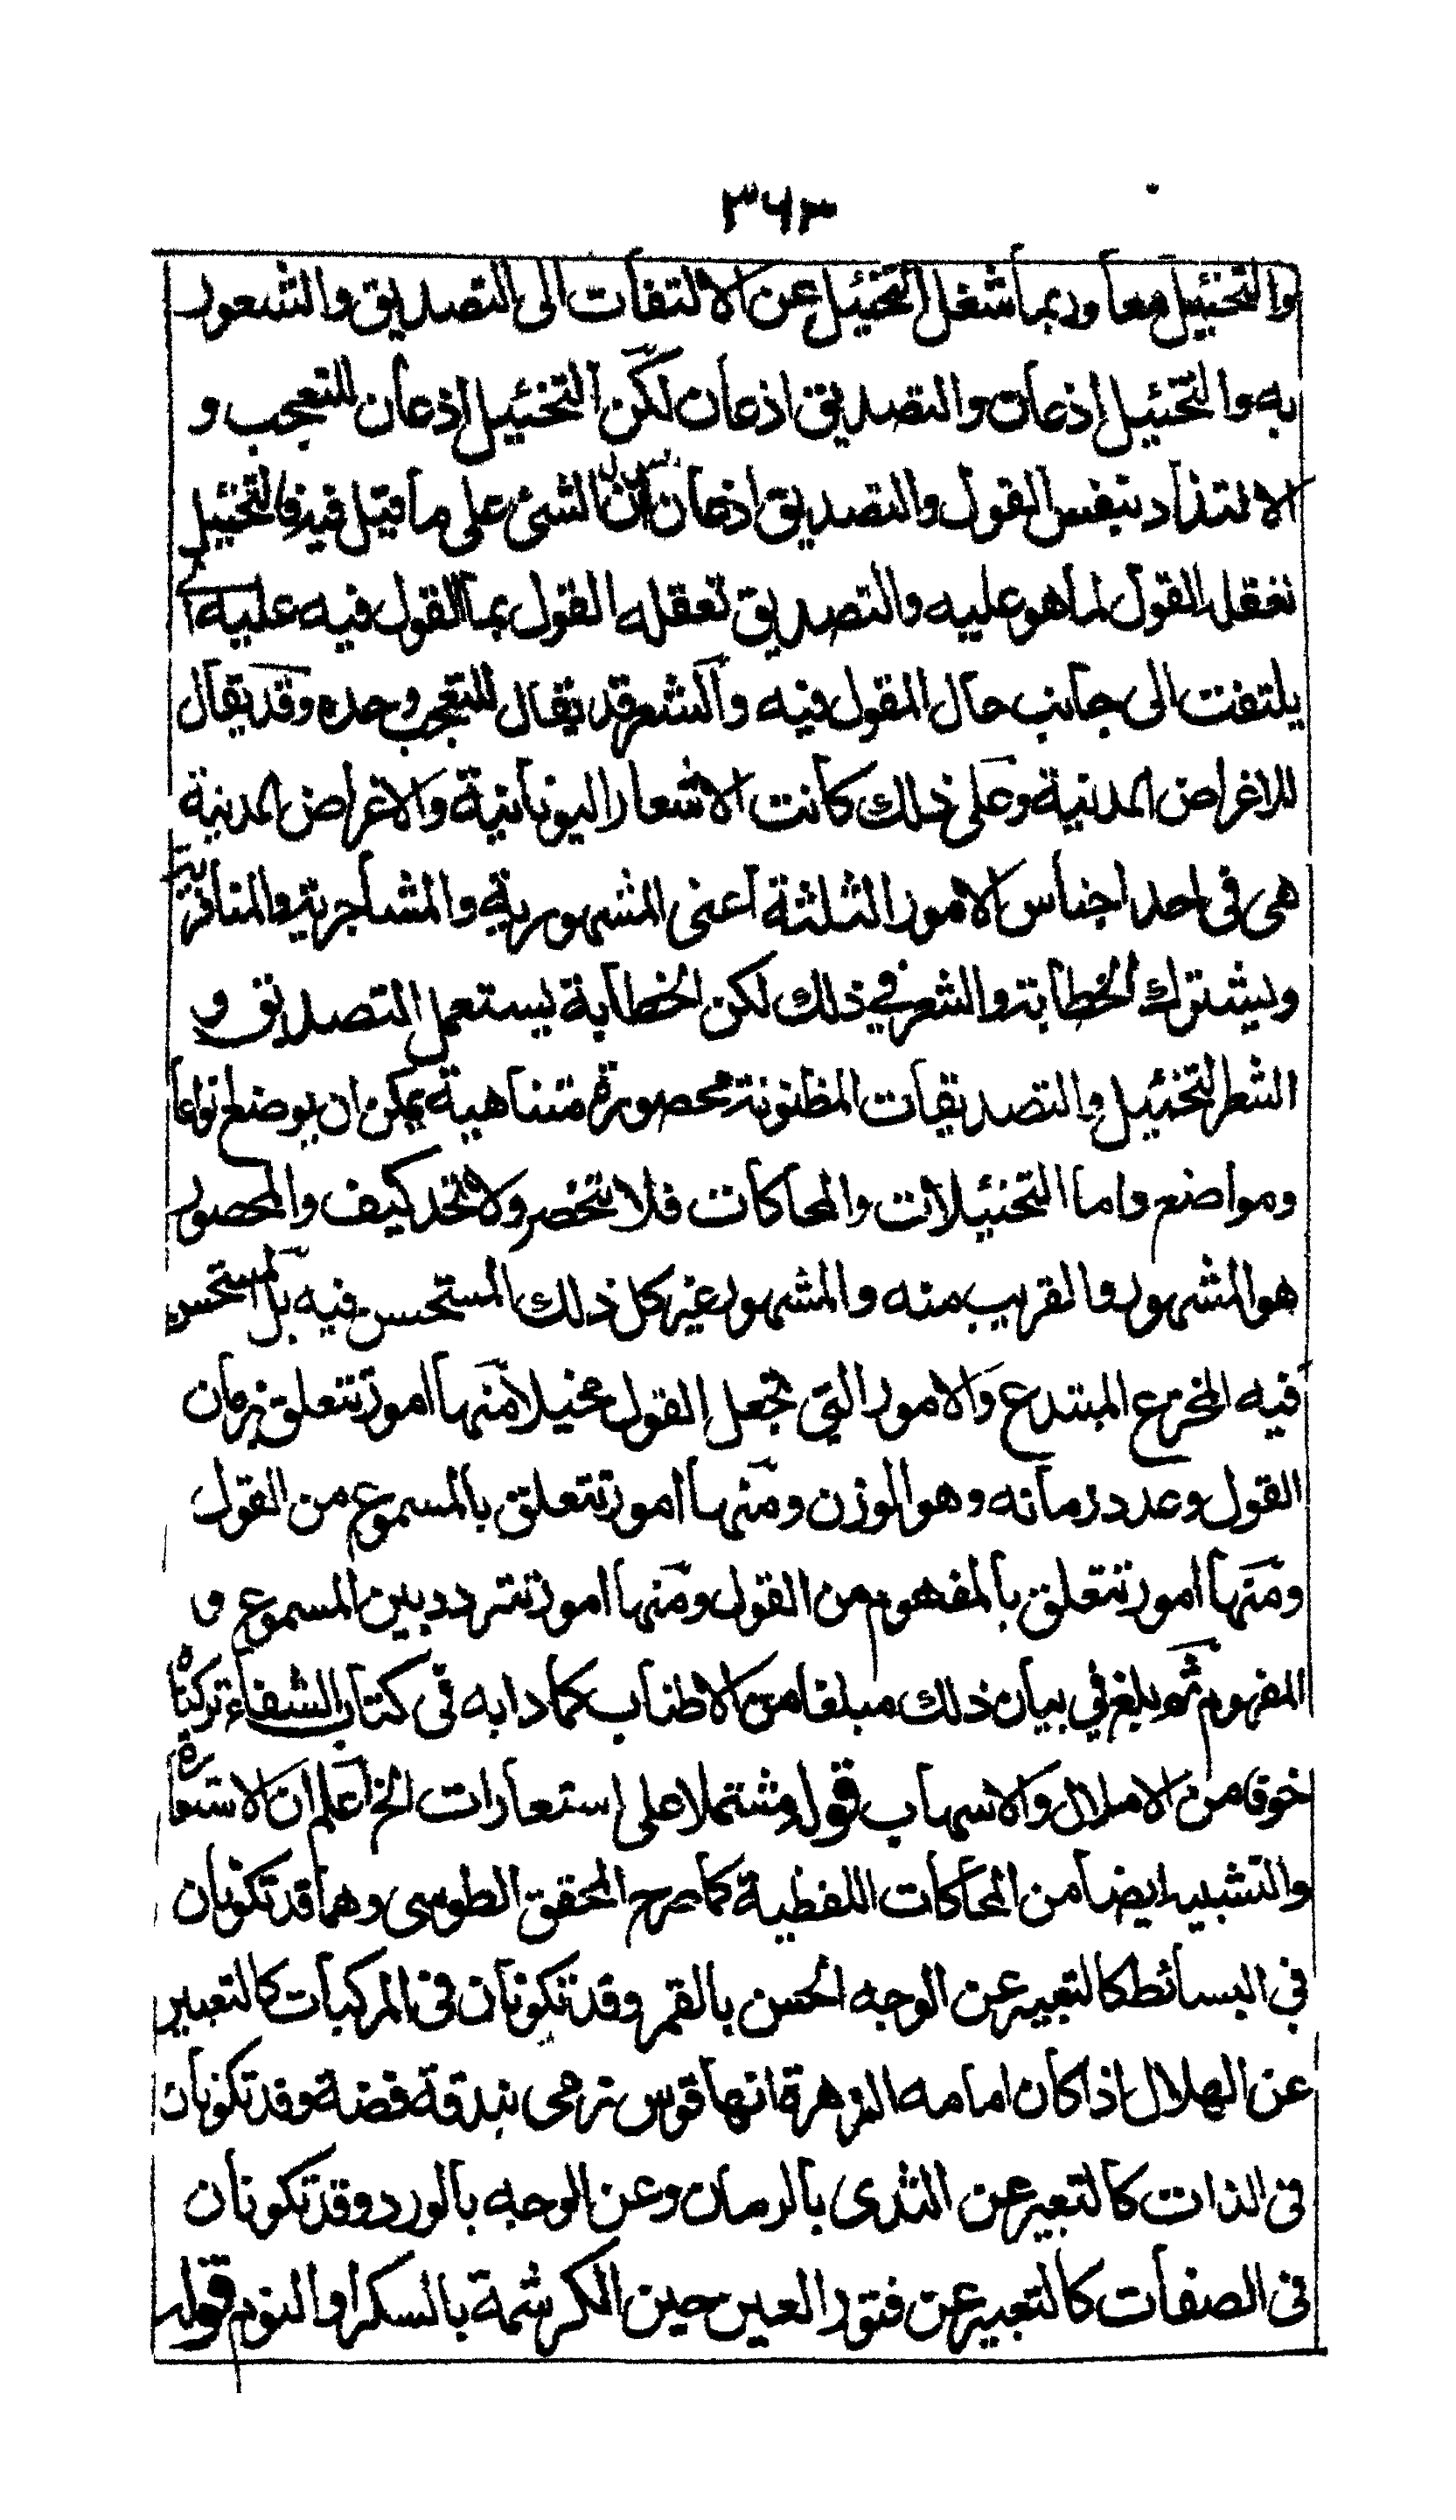 ٣٦٣
والتخئيل معا وربما شغل التخئيل عن الالتفات الى التصديق والشعور
به والتخئيل اذعان والتصديق اذعان لكن التخئيل اذعان للتعجب و
الالتذاذ بنفس القول والتصديق اذعان لان الشئ على ما قيل فيه فالتخئيل
تفعله القول لما هو عليه والتصديق تفعله القول بما المقول فيه عليه اى
يلتفت الى جانب حال المقول فيه والشعر قد يقال للتعجب وحده وقد يقال
للاغراض المدنية وعلى ذلك كانت الاشعار اليونانية والاغراض المدنية
هى فى احد اجناس الامور الثلثة اعنى المشهورية والمشاجرية والمنافرية
ويشترك الخطابة والشعر في ذلك لكن الخطابة يستعمل التصديق و
الشعر التخئيل والتصديقات المظنونة محصورة متناهية يمكن ان يوضع انواعا
ومواضع واما التخئيلات والمحاكات فلا تنحصر ولا تحد كيف والمحصور
هو المشهور والقريب منه والمشهور غير كل ذلك المستحسن فيه بل المستحسن
فيه المخترع المبتدع والامور التي تجعل القول مخيلا منها امور تتعلق بزمان
القول وعدد زمانه وهو الوزن ومنها امور تتعلق بالمسموع من القول
ومنها امور تتعلق بالمفهوم من القول ومنها امور تتردد بين المسموع و
المفهوم ثم يبلغ في بيان ذلك مبلغا من الاطناب كما دابه فى كتاب الشفاء تركناه
خوفا من الاملال والاسهاب قوله مشتملا على استعارات الخ اعلم ان الاستعارة
والتشبيه ايضا من المحاكات اللفظية كما صرح المحقق الطوسى وهما قد تكونان
في البسائط كالتعبير عن الوجه الحسن بالقمر وقد تكونان فى المركبات كالتعبير
عن الهلال اذا كان امامه الزهرة انها قوس ترمى بندقة فضة وقد تكونان
فى الذات كالتعبير عن الثدى بالرمان وعن الوجه بالورد وقد تكونان
فى الصفات كالتعبير عن فتور العين حين الكرشمة بالسكر او النوم قوله